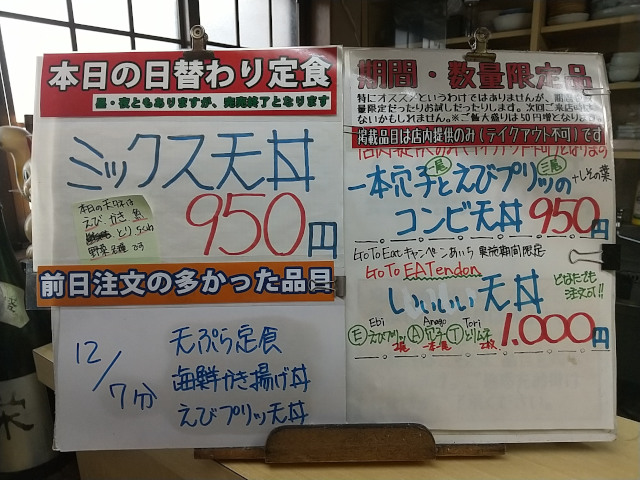 本日の日替わり定食
昼・夜ともありますが、完売終了となります
ミックス天丼
本日の天ダネは
えび かき 魚
とり
野菜
950円
前日注文の多かった品目
12/7分
天ぷら定食
海鮮かき揚げ丼
えびプリッ天丼
期間・数量限定品
特にオススメというわけではありませんが、期間
量限定だったりお試しだったりします。次回ご来店時に
ないかもしれません。※ご飯大盛りは50円増となりま
掲載品目は店内提供のみ(テイクアウト不可)です
二尾 三尾
一本穴子とえびプリッの +しその葉
コンビ天丼 950円
GoToEatキャンペーンあいち 実施期間限定
GoTo EATendon
いいいい天丼 どなたでも注文可!!
Ebi Anago Tori
Ⓔえびプリッ Ⓐ穴子 Ⓣとりムネ
2尾 一本 2枚
1.000円